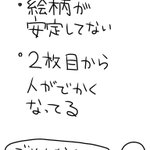 ・絵柄が
安定してない
・2枚目から
人がでかく
なってる